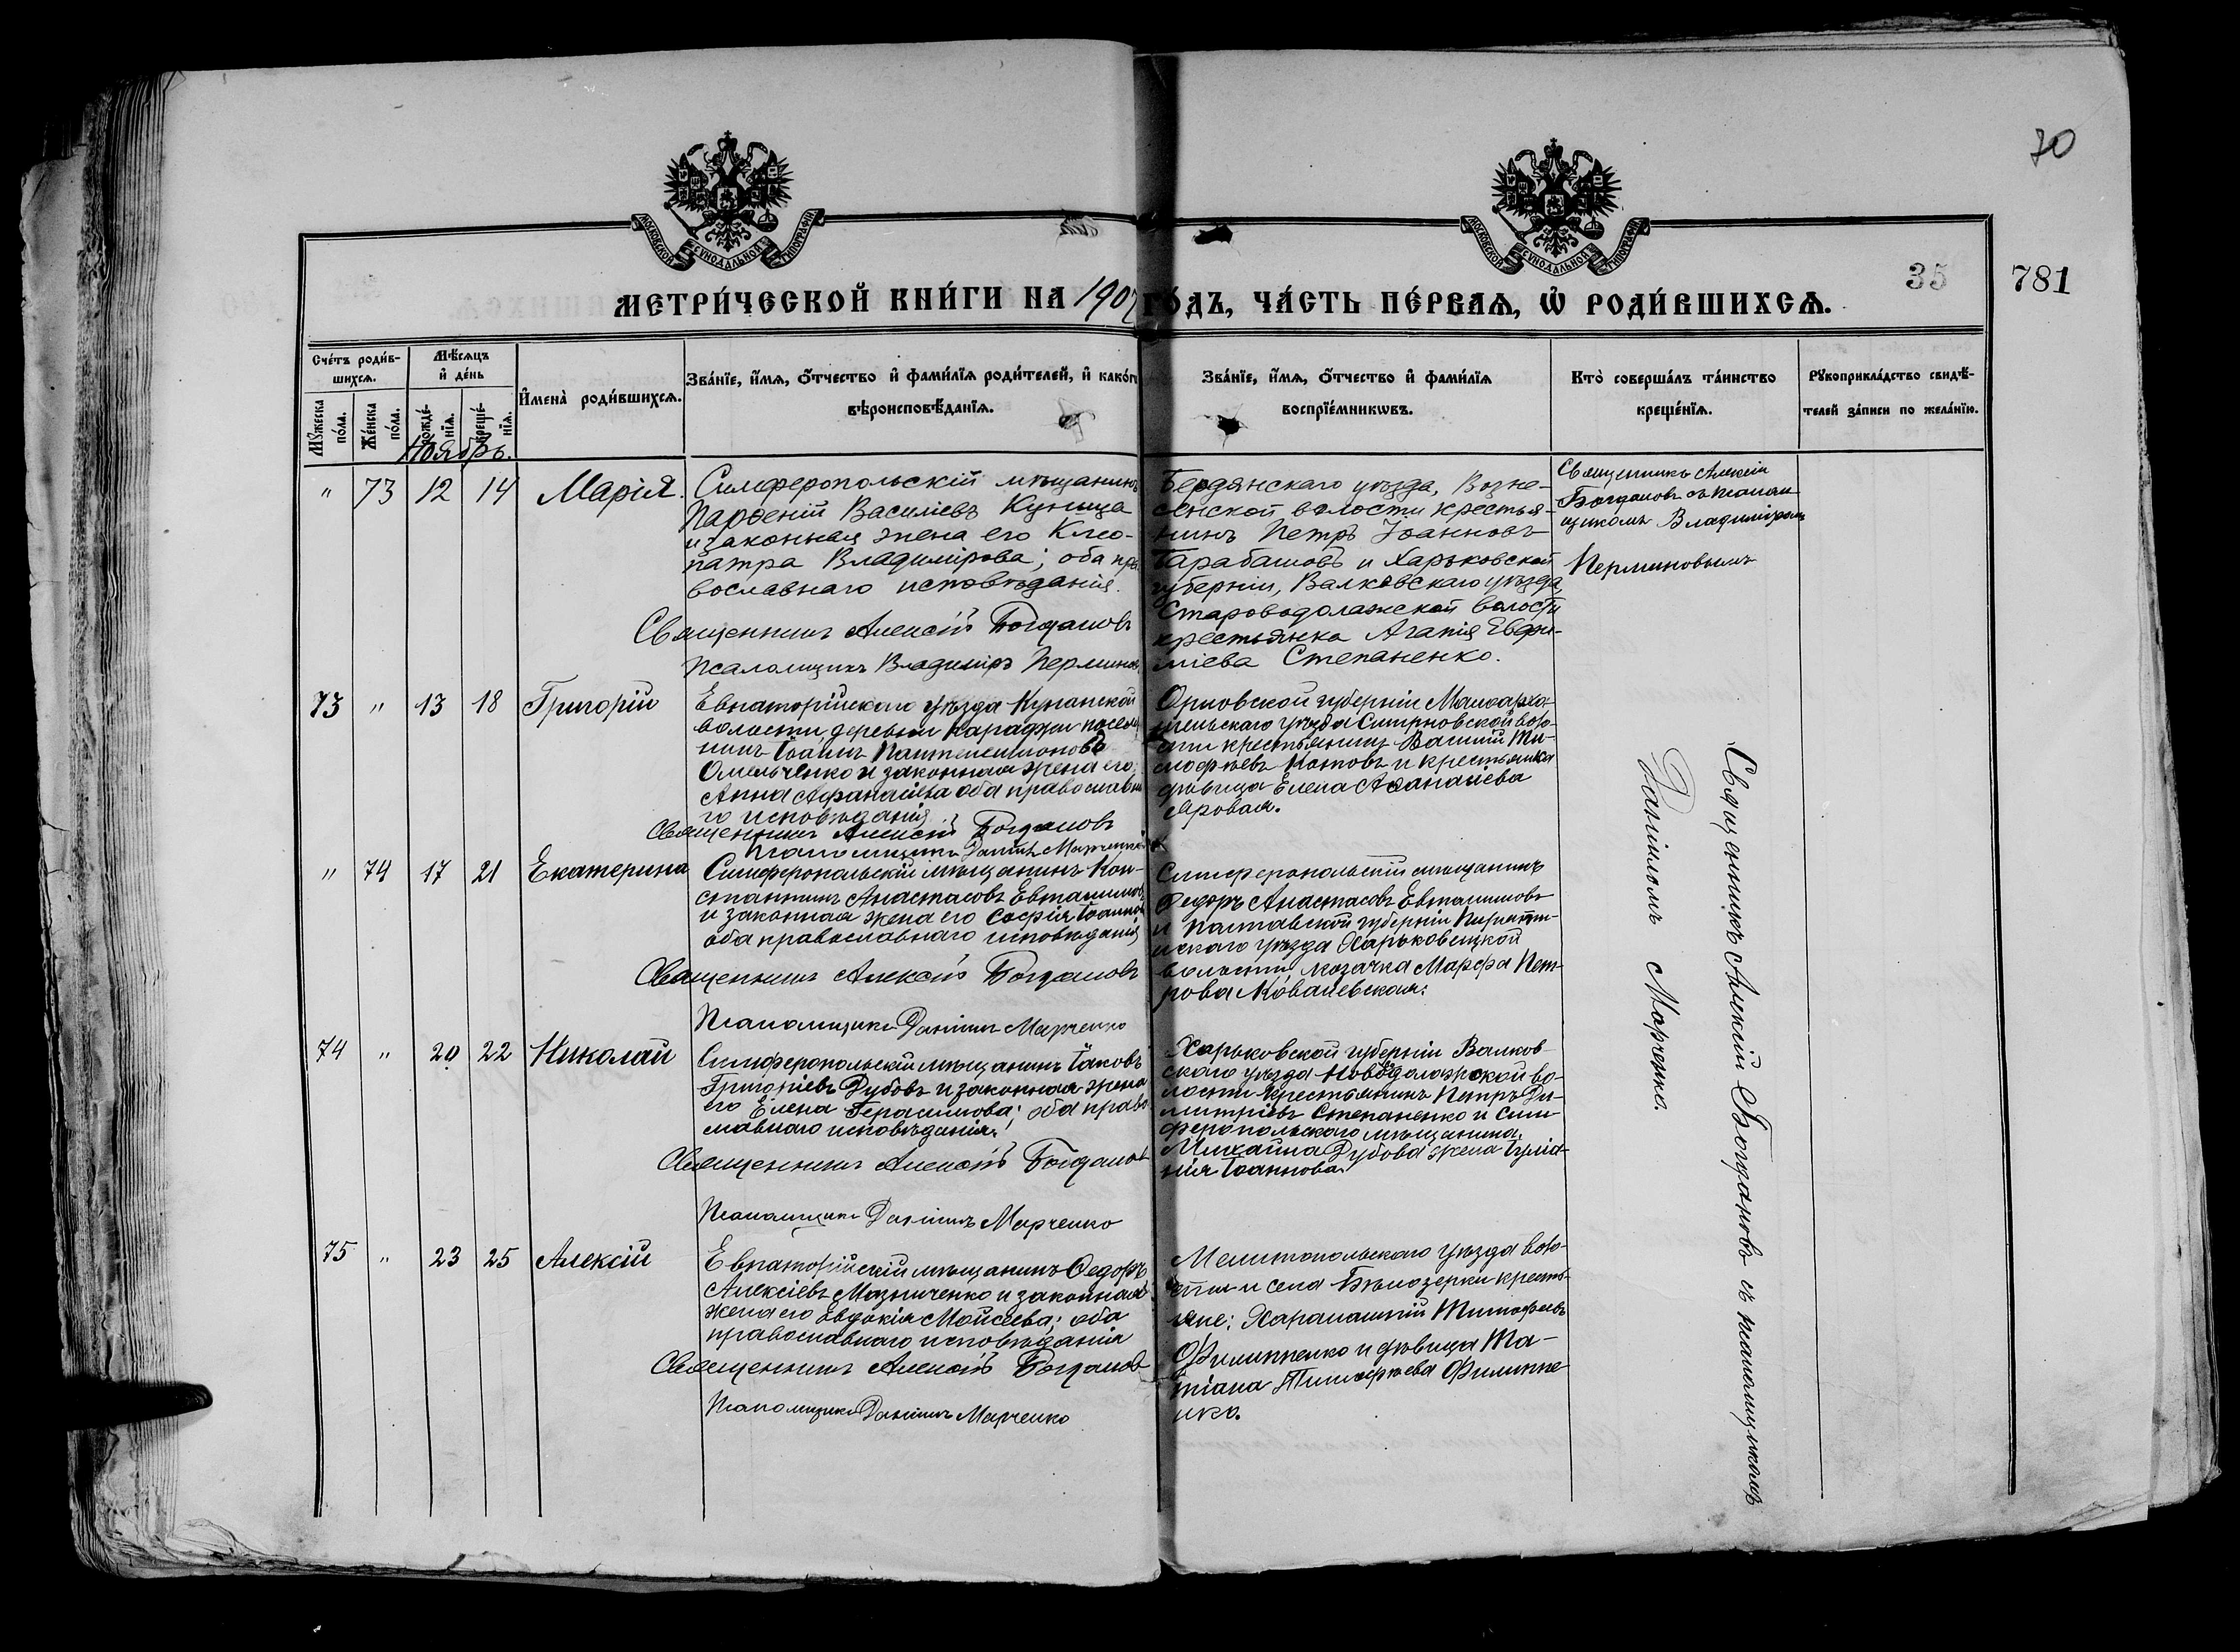 70
МОСКОВСКОЙ СѴНОДАЛЬНОЙ ТИПОГРАФІИ
МОСКОВСКОЙ СѴНОДАЛЬНОЙ ТИПОГРАФІИ
35
781
МЕТРИ́ЧЕСКОЙ КНИ́ГИ НА 1907 ГО́ДЪ, ЧА́СТЬ ПЕ́РВАѦ, Ѡ҆ РОДИ́ВШИХСѦ.
Сче́тъ роди́в-
шихсѧ.
Мꙋжеска по́ла.
Же́нска по́ла.
Мѣ́сѧцъ
и҆ де́нь
рожде́-
нїѧ.
креще́-
нїѧ.
И҆мена̀ роди́вшихсѧ.
Зва́нїе, и҆́мѧ, ѻ҆́тчество и҆ фами́лїѧ роди́телей, и҆ како́гѡ
вѣроисповѣ́данїѧ.
Зва́нїе, и҆́мѧ, ѻ҆́тчество и҆ фами́лїѧ
воспрїе́мникѡвъ.
Кто̀ соверша́лъ та́инство
креще́нїѧ.
Рꙋкоприкла́дство свидѣ́-
телей за́писи по жела́нїю.
Ноябрь.
" 73 12 14 Марія.
Симферопольскій мѣщанинъ
Парѳеній Василіевъ Куница
и законная жена его Клео-
патра Владимірова; оба пра
вославнаго исповѣданія.
Священникъ Алексій Богдановъ
Псаломщикъ Владиміръ Перминовъ
Бердянскаго уѣзда, Возне-
сенской волости крестья-
нинъ Петръ Іоанновъ
Тарабашовъ и Харьковской
губерніи, Валковскаго уѣзда,
Староводолажской волости
крестьянка Агапія Евфи-
міева Степаненко.
Священникъ Алексій
Богдановъ съ псалом-
щикомъ Владиміромъ
Перминовымъ
73 " 13 18 Григорій
Евпаторійскаго уѣзда Кунанской
волости, деревни Караджи поселя
нинъ Іоаннъ Пантелеимоновъ
Омельченко и законная жена его
Анна Афанасіева оба православна
го исповѣданія
Священникъ Алексій Богдановъ
Псаломщикъ Даніилъ Марченко
Орловской губерніи Малоарха-
нгельскаго уѣзда Смирновской воло-
сти крестьянинъ Василій Ти-
моѳеевъ Котовъ и крестьянка
дѣвица Елена Аѳанасіева
Яровая.
" 74 17 21 Екатерина
Симферопольскій мѣщанинъ Кон-
стантинъ Анастасовъ Евтанимовъ
и законная жена его Софія Іоаннова
оба православнаго исповѣданія
Священникъ Алексій Богдановъ
Псаломщикъ Даніилъ Марченко
Симферопольскій мѣщанинъ
Ѳедоръ Анастасовъ Евтанимовъ
и Полтавской губерніи Пирятин-
искаго уѣзда Харьковецкой
волости козачка Марфа Пет-
рова Ковалевская.
74 " 20 22 Николай
Симферопольскій мѣщанинъ Іаковъ
Григоріевъ Дубовъ и законная жена
его Елена Герасимова; оба право
славнаго исповѣданія.
Священникъ Алексій Богдановъ
Псаломщикъ Даніилъ Марченко
Харьковской губерніи Валков-
скаго уѣзда Новодоложской во-
лости крестьянинъ Петръ Ди-
митріевъ Степаненко и Сим-
феропольскаго мѣщанина
Михаила Дубова жена Іуліа-
нія Іоаннова.
75 " 23 25 Алексій
Евпаторійскій мѣщанинъ Ѳедоръ
Алексіевъ Мазниченко и законная
жена его Евдокія Моисеева; оба
православнаго исповѣданія
Священникъ Алексій Богдановъ
Псаломщикъ Даніилъ Марченко
Мелитопольскаго уѣзда воло-
сти и села Бѣлозерки кресть-
яне: Харалампій Тимоѳеевъ
Филиппенко и дѣвица Та-
тіана Тимоѳеева Филиппе-
нко.
Священникъ Алексій Богдановъ съ псаломщикомъ
Даніиломъ Марченко.